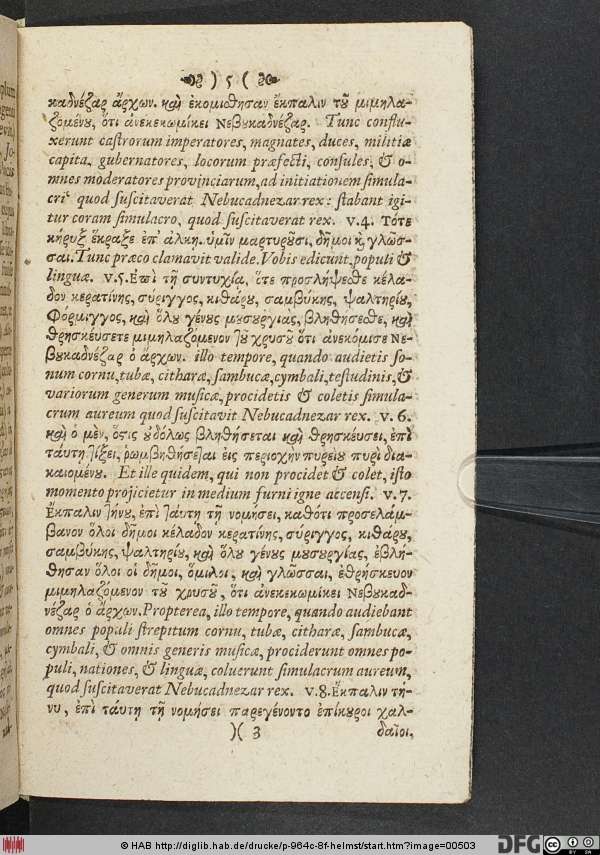 ) 5 (
καδνέζαρ ἄρχων. καὶ ἐκομιθησαν ἔκπαλιν τοῦ μιμηλα-
ζομένου, ὅτι ἀνεκεκωμίκει Νεβουκαδνέζαρ. Tunc conflu-
xerunt castrorum imperatores, magnates, duces, militiæ
capita, gubernatores, locorum præfecti, consules, & o-
mnes moderatores provinciarum, ad initiationem simula-
cri quod suscitaverat Nebucadnezar rex: stabant igi-
tur coram simulacro, quod suscitaverat rex. v.4. Τότε
κήρυξ ἕκραξε ἐπ' ἀλκῆ. ὑμῖν μαρτυροῦσι, δῆμοι κὶ γλῶσ-
σαι. Tunc præco clamavit valide. Vobis edicunt, populi &
linguæ. v.5. Επὶ τῆ συντυχία, ὅτε προσλήψεσθε κέλα-
δον κερατίνης, σύριγγος, κιθάρου, σαμβύκης, ψαλτηρίου,
Φόρμιγγος, καὶ ὅλου γένους μουσουργίας, βληθήσεσθε, καὶ
θρησκεύσετε μιμηλαζόμενον τοῦ χρυσοῦ ὅτι ἀνεκόμισε Νε-
βουκαδνέζαρ ὁ ἄρχων. illo tempore, quando audietis so-
num cornu, tubæ, citharæ, sambucæ, cymbali, testudinis, &
variorum generum musicæ, procidetis & coletis simula-
crum aureum quod suscitavit Nebucadnezar rex. v. 6.
καὶ ὁ μὲν, ὅστις οὐδόλως βληθήσεται καὶ θρησκεύσει, ἐπὶ
ταύτη τίξει, ῥωμβηθήσεται εἰς περιοχὴν πυρείου πυρὶ δια-
καιομένου. Et ille quidem, qui non procidet & colet, isto
momento projicietur in medium furni igne accensi. v. 7.
Ἔκπαλιν τήνου, ἐπὶ ταύτη τῆ νομήσει, καθότι προσελάμ-
βανον ὅλοι δῆμοι κέλαδον κερατίνης, σύριγγος, κιθάρου,
σαμβύκης, ψαλτηρίου, καὶ ὅλου γένους μουσουργίας, ἐβλή-
θησαν ὅλοι οἱ δῆμοι, ὅμιλοι, καὶ γλῶσσαι, ἐθρήσκευον
μιμηλαζόμενον τοῦ χρυσοῦ, ὅτι ἀνεκεκωμίκει Νεβουκαδ-
νέζαρ ὁ ἄρχων. Propterea, illo tempore, quando audiebant
omnes populi strepitum cornu, tubæ, citharæ, sambucæ,
cymbali, & omnis generis musicæ, prociderunt omnes po-
puli, nationes, & linguæ, coluerunt simulacrum aureum,
quod suscitaverat Nebucadnezar rex. v.8. Εκπαλιν τή-
νου, ἐπὶ ταύτη τῆ νομήσει παρεγένοντο ἐπίκουροι χαλ-
)( 3 δαῖοι,
© HAB http://diglib.hab.de/drucke/p-964c-8f-helmst/start.htm?image=00503
DFG